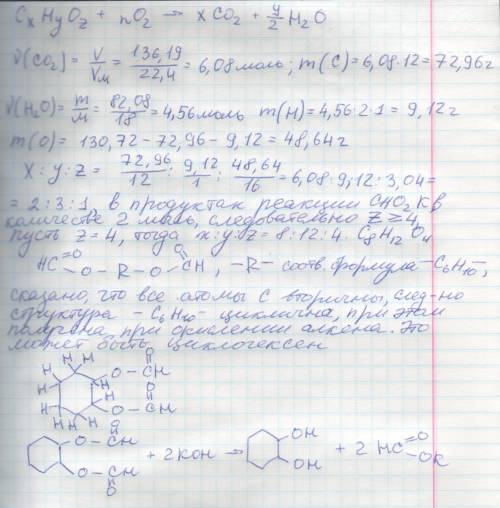 CxHyOz + nO2 → xCO2 + y/2 H2O
ν(CO2) = V/Vм = 136,19/22,4 = 6,08 моль; m(C) = 6,08·12 = 72,96г
ν(H2O) = m/м = 82,08/18 = 4,56 моль m(H) = 4,56·2·1 = 9,12г
m(O) = 130,72 - 72,96 - 9,12 = 48,64г
x : y : z = 72,96/12 : 9,12/1 : 48,64/16 = 6,08 : 9,12 : 3,04 =
= 2 : 3 : 1, в продуктах реакции CHO2K в
количестве 2 моль, следовательно z ≥ 4,
пусть z = 4, тогда x : y : z = 8 : 12 : 4. C8H12O4
HC=O-O-R-O-CH=O, -R- соотв. формула -C6H10-,
сказано, что все атомы C вторичны, след-но
структура -C6H10- циклична, при этом
получена при окислении алкена. Это
может быть циклогексен
H H H H H H H H H H O-CH=O O-CH=O
O-CH=O O-CH=O + 2KOH → OH OH + 2 HC=O-OK